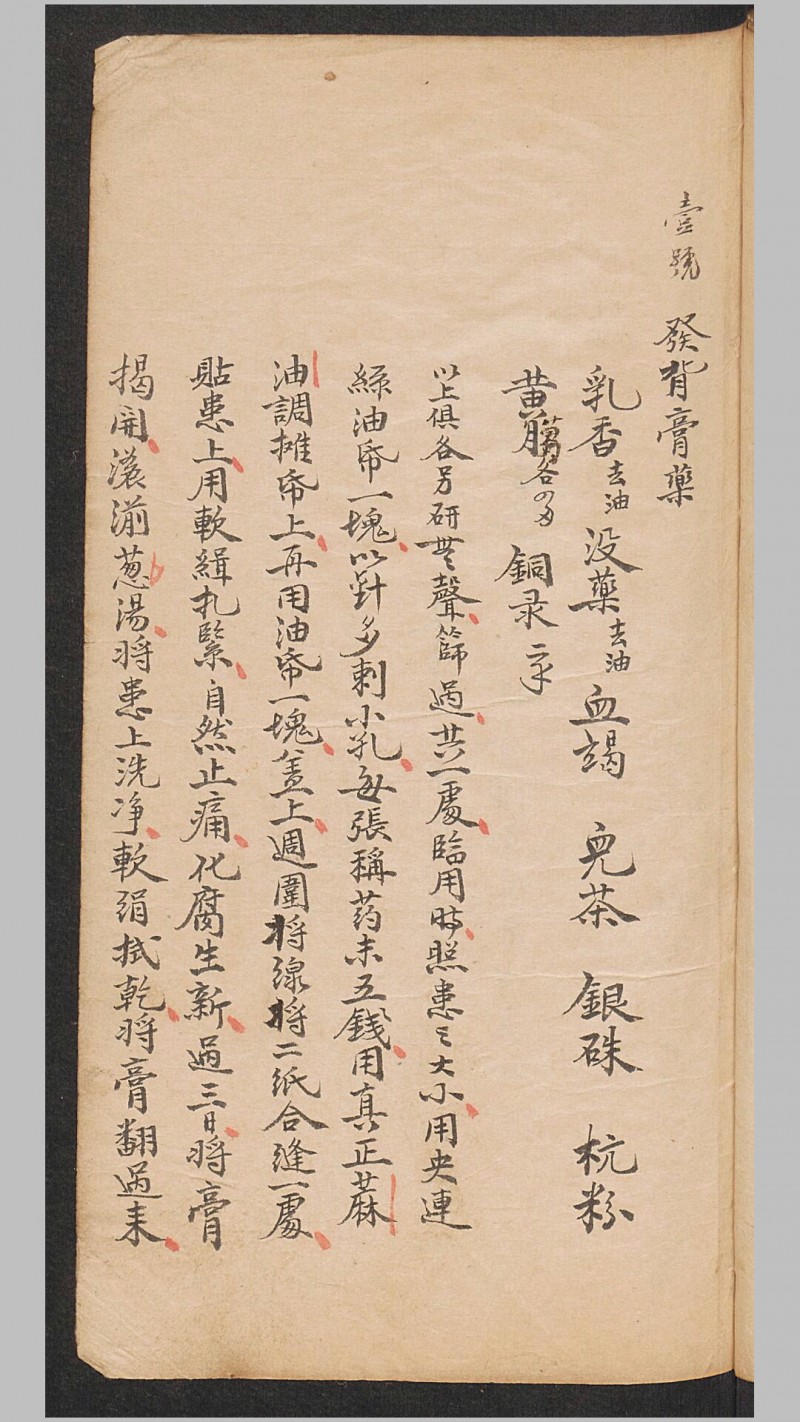 壹號 發背膏藥
乳香去油 没藥去油 血竭 兒茶 銀硃 杭粉
黄 各 銅录
以上俱各另研無聲篩過共一處臨用時照患之大小用夾連
絲油帋一塊以針多刺小孔每張稱药末五錢用真正蔴
油調摊帋上再用油帋一塊盖上週圍将線将二紙合縫一處
貼患上用軟緝扎緊自然止痛化腐生新過三日将膏
揭開滾湔葱湯将患上洗净軟絹拭乾将膏翻過来